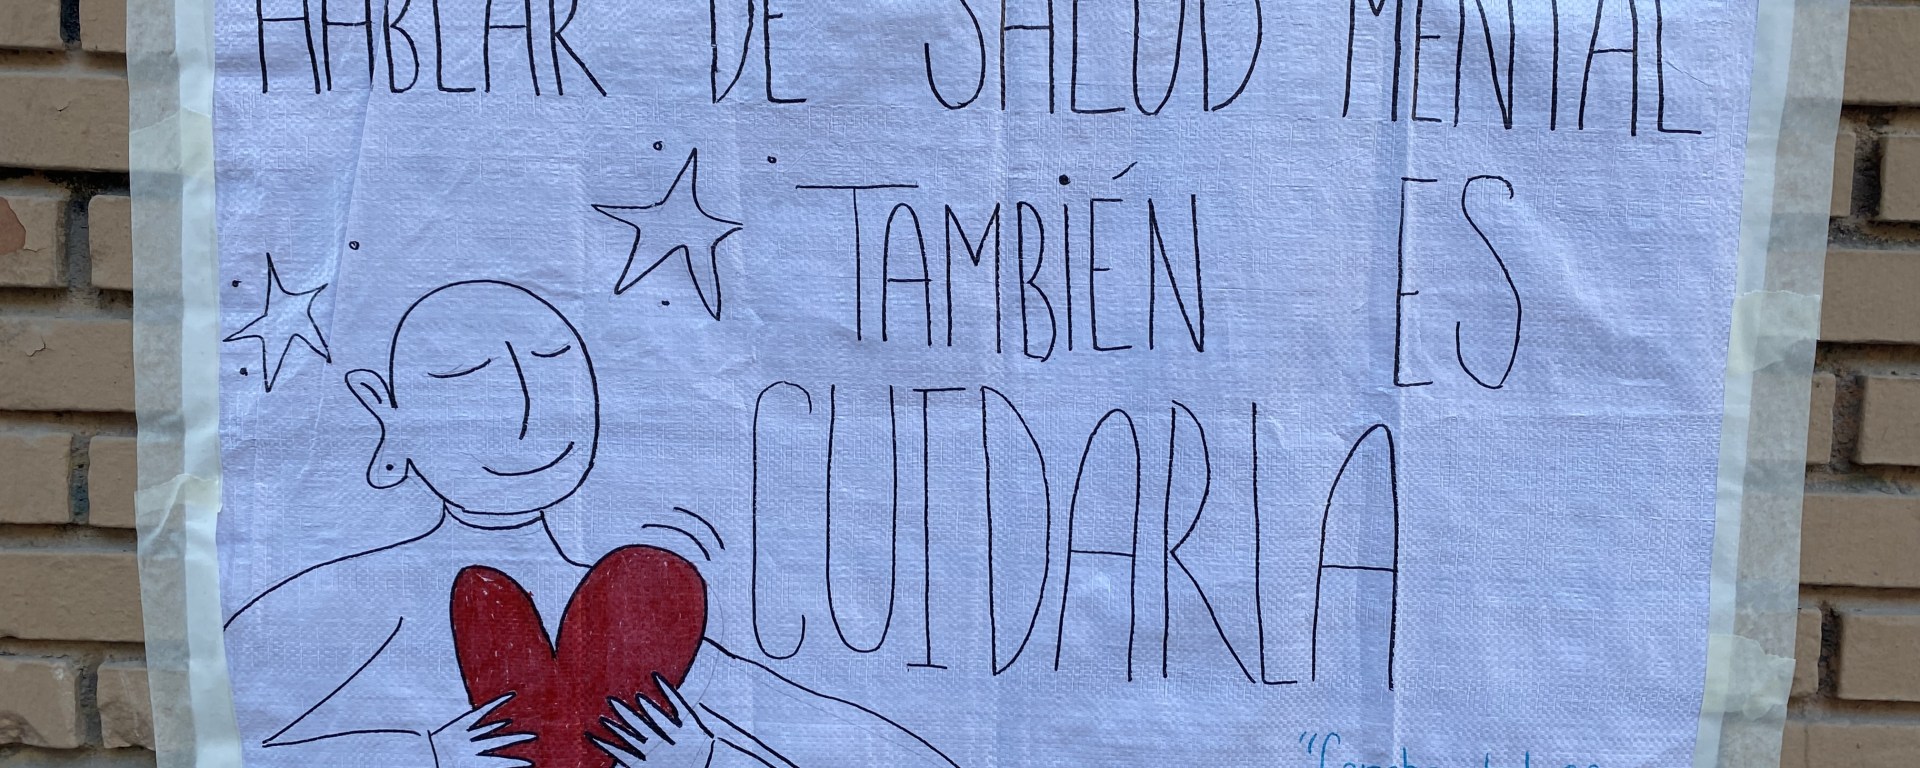 HABLAR DE SALUD MENTAL
TAMBIÉN ES
CUIDARLA